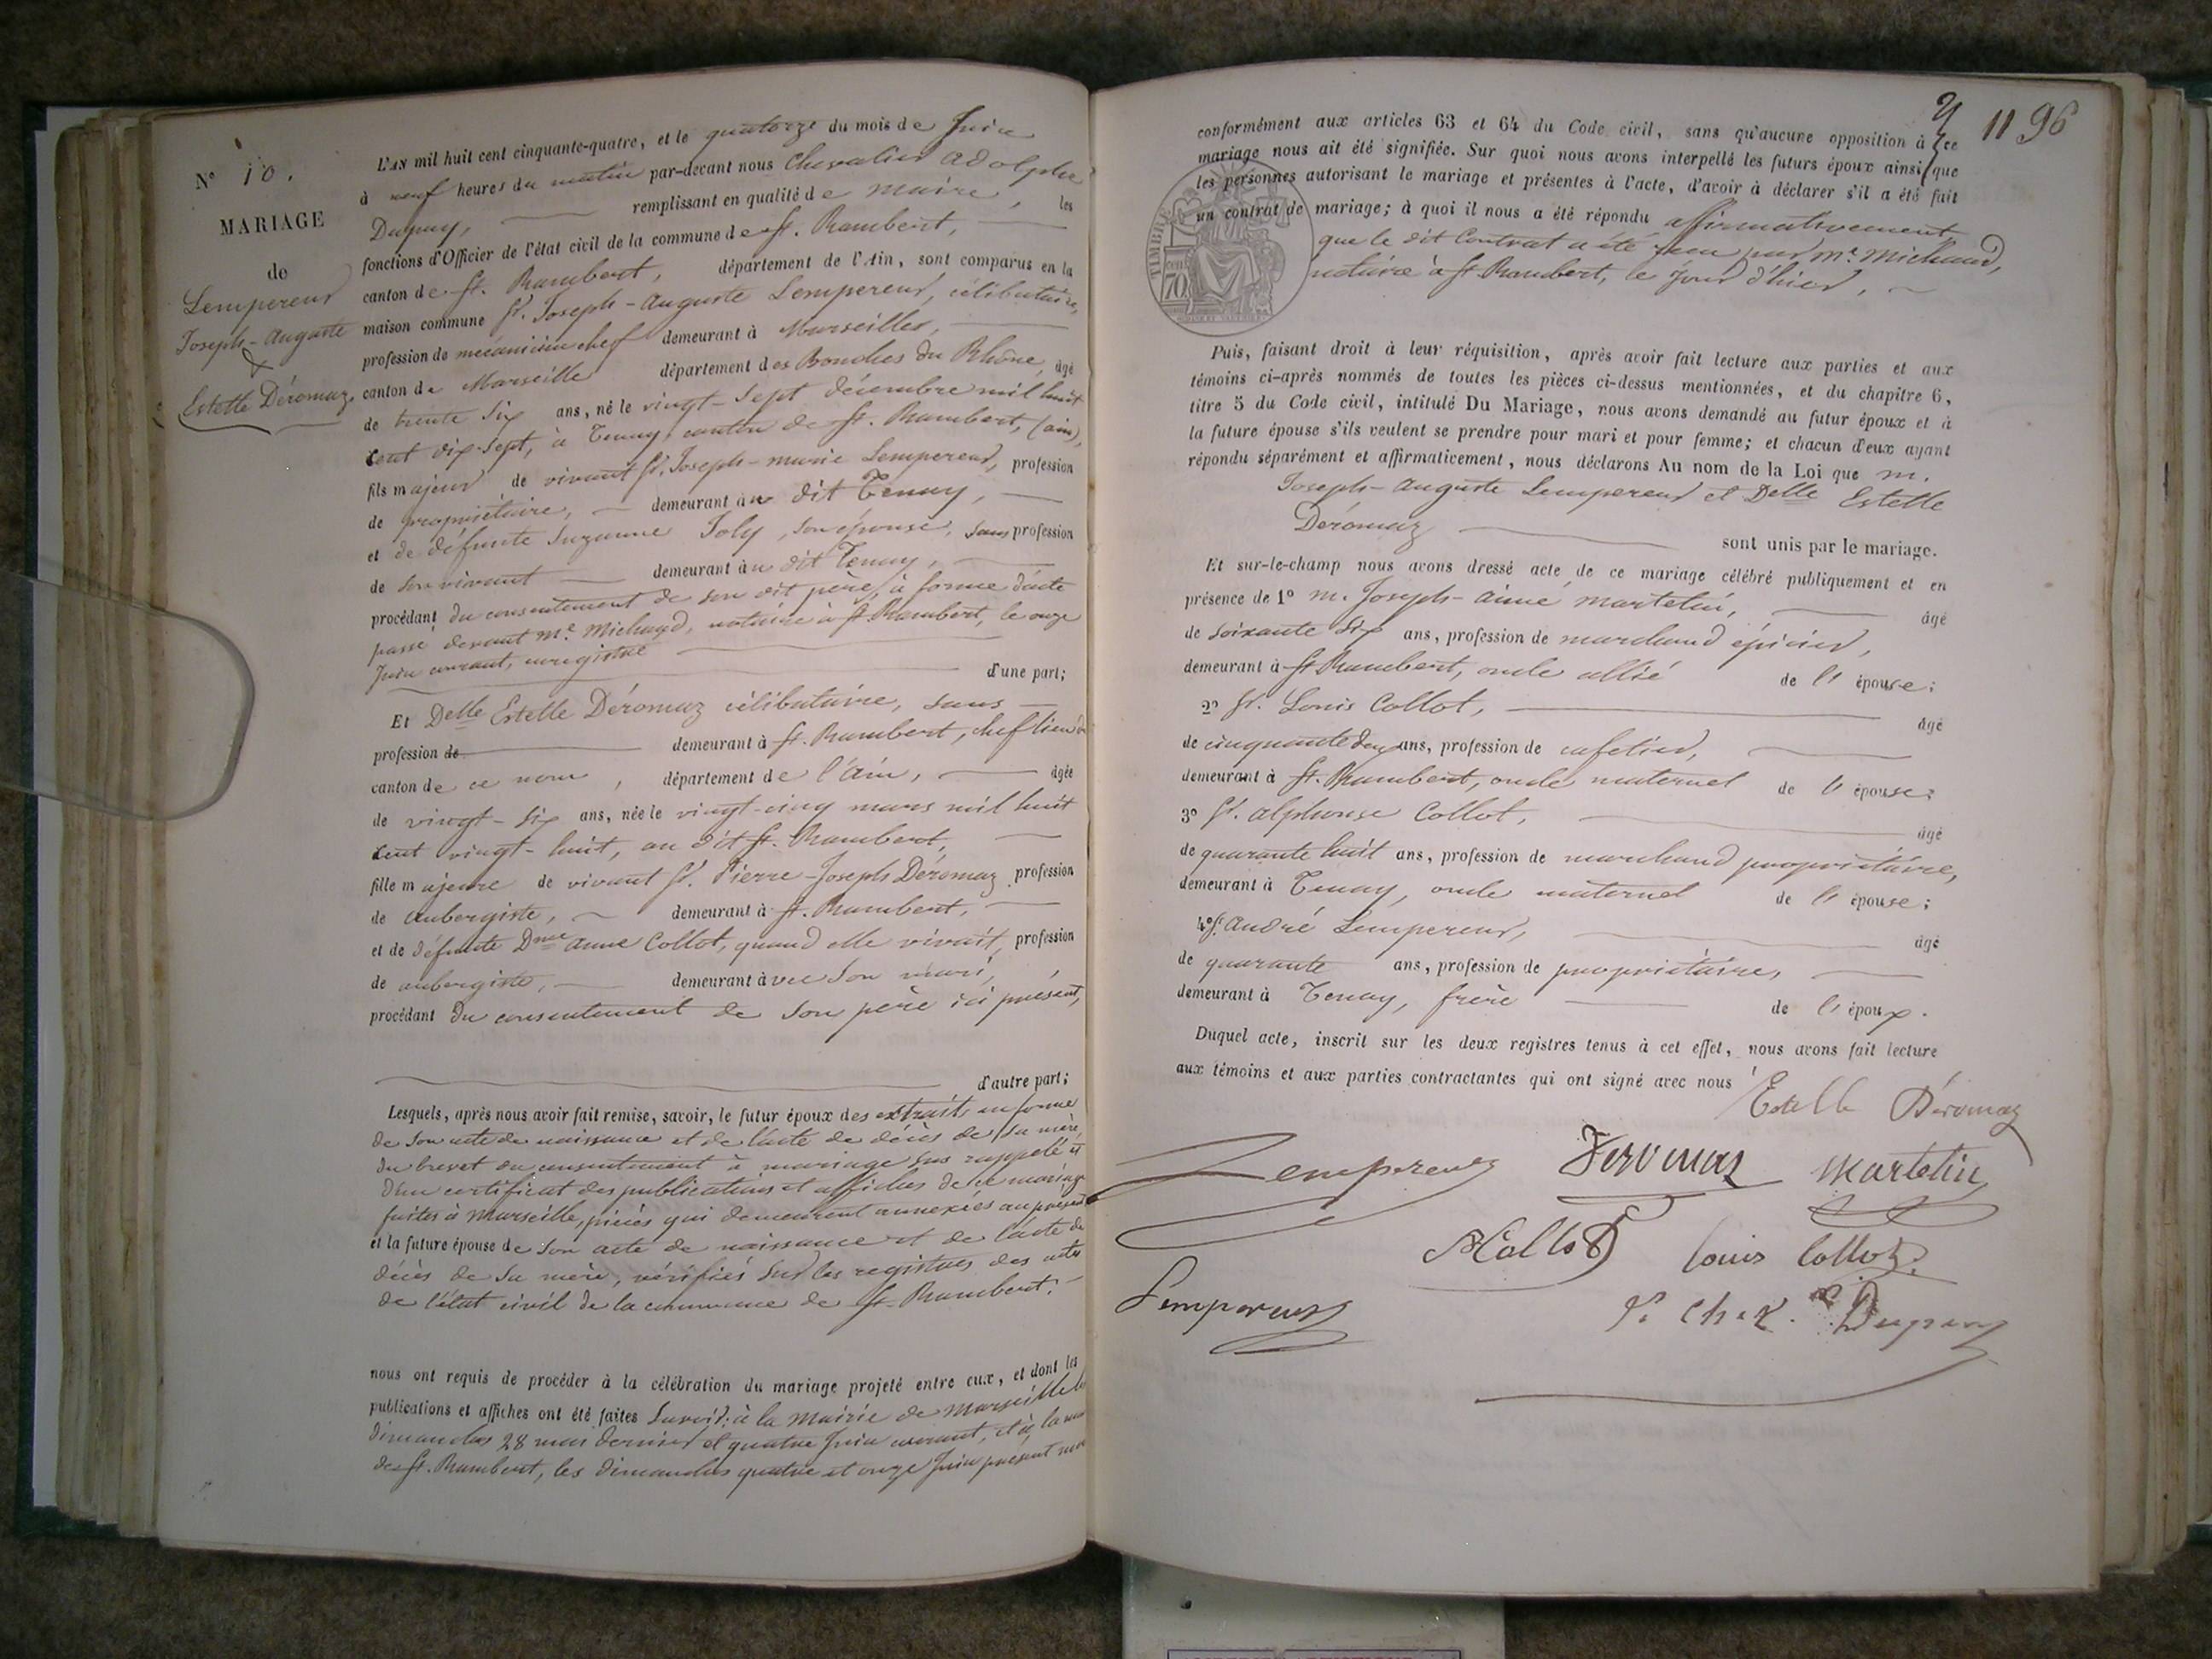 N° 10.
MARIAGE
de
Lempereur
Joseph-Auguste
&
Estelle Déromaz
L'AN mil huit cent cinquante-quatre, et le quatorze du mois de Juin
à neuf heures du matin par-devant nous Chevalier Adolphe
Dupuy, remplissant en qualité de maire, les
fonctions d'Officier de l'état civil de la commune de St. Rambert,
canton de St. Rambert, département de l'Ain, sont comparus en la
maison commune Sr. Joseph-Auguste Lempereur, célibataire,
profession de mécanicien chef demeurant à Marseilles,
canton de Marseille département des Bouches du Rhône, âgé
de trente six ans, né le vingt-sept décembre mil huit
cent dix-sept, à Tenay, canton de St. Rambert, (ain),
fils majeur de vivant Sr. Joseph-marie Lempereur, profession
de propriétaire, demeurant au dit Tenay,
et de défunte Suzanne Joly, son épouse, sans profession
de son vivant demeurant au dit Tenay,
procédant du consentement de son dit père, à forme d'acte
passé devant Me. Michaud, notaire à St. Rambert, le onze
Juin courant, enregistré
d'une part;
Et Delle Estelle Déromaz célibataire, sans
profession de demeurant à St. Rambert, chef lieu de
canton de ce nom, département de l'ain, âgée
de vingt-six ans, née le vingt-cinq mars mil huit
cent vingt-huit, au dit St. Rambert,
fille majeure de vivant Sr. Pierre-Joseph Déromaz profession
de aubergiste, demeurant à St. Rambert,
et de défunte Dme Anne Collot, quand elle vivait, profession
de aubergiste, demeurant avec son mari,
procédant du consentement de son père ici présent,
d'autre part;
Lesquels, après nous avoir fait remise, savoir, le futur époux des extraits en forme
de son acte de naissance et de l'acte de décès de sa mère,
du brevet du consentement à mariage sus rappelé et
d'un certificat des publications et affiches de ce mariage
faites à Marseille, pièces qui demeurent annexées au présent
et la future épouse de son acte de naissance et de l'acte de
décès de sa mère, vérifiés sur les registres des actes
de l'état civil de la commune de St. Rambert.
nous ont requis de procéder à la célébration du mariage projeté entre eux, et dont les
publications et affiches ont été faites savoir: à la Mairie de Marseille les
dimanches 28 mai dernier et quatre Juin courant, et à la
de St. Rambert, les dimanches quatre et onze Juin présent mois
11 96
conformément aux articles 63 et 64 du Code civil, sans qu'aucune opposition à ce
mariage nous ait été signifiée. Sur quoi nous avons interpellé les futurs époux ainsi que
les personnes autorisant le mariage et présentes à l'acte, d'avoir à déclarer s'il a été fait
un contrat de mariage; à quoi il nous a été répondu affirmativement
que le dit Contrat a été reçu par Me. Michaud,
notaire à St. Rambert, le jour d'hier.
TIMBRE
70
Puis, faisant droit à leur réquisition, après avoir fait lecture aux parties et aux
témoins ci-après nommés de toutes les pièces ci-dessus mentionnées, et du chapitre 6,
titre 5 du Code civil, intitulé Du Mariage, nous avons demandé au futur époux et à
la future épouse s'ils veulent se prendre pour mari et pour femme; et chacun d'eux ayant
répondu séparément et affirmativement, nous déclarons Au nom de la Loi que M.
Joseph-Auguste Lempereur et Delle Estelle
Déromaz sont unis par le mariage.
Et sur-le-champ nous avons dressé acte de ce mariage célébré publiquement et en
présence de 1° M. Joseph-aimé Martelin, âgé
de soixante six ans, profession de marchand épicier,
demeurant à St Rambert, oncle allié de l'épouse;
2° Sr. Louis Collot, âgé
de cinquante deux ans, profession de cafetier,
demeurant à St. Rambert, oncle maternel de l'épouse;
3° Sr. alphonse Collot, âgé
de quarante huit ans, profession de marchand propriétaire,
demeurant à Tenay, oncle maternel de l'épouse;
4° Sr. André Lempereur, âgé
de quarante ans, profession de propriétaire,
demeurant à Tenay, frère de l'époux.
Duquel acte, inscrit sur les deux registres tenus à cet effet, nous avons fait lecture
aux témoins et aux parties contractantes qui ont signé avec nous
Estelle Déromaz
Lempereur Deromaz Martelin
ACollot louis Collot
Lempereur Cher. Dupuy